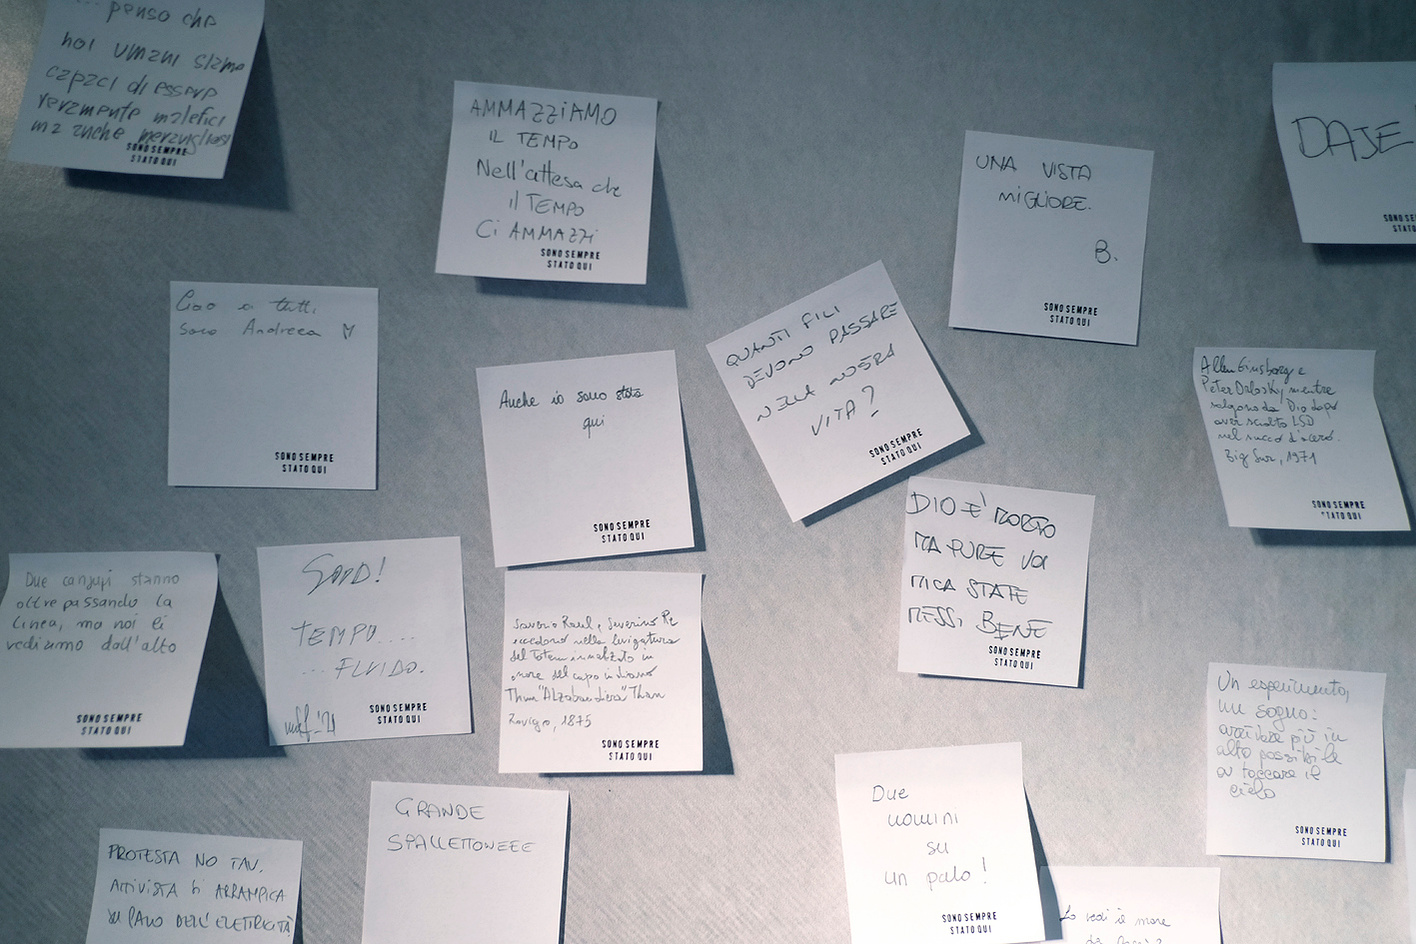 ... penso che
noi umani siamo
capaci di essere
veramente malefici
ma anche meravigliosi
SONO SEMPRE
STATO QUI
AMMAZZIAMO
IL TEMPO
Nell'attesa che
il TEMPO
Ci AMMAZZI
SONO SEMPRE
STATO QUI
UNA VISTA
MIGLIORE.
B.
SONO SEMPRE
STATO QUI
DAJE
SONO SE
STATO
Ciao a tutti
sono Andreea
SONO SEMPRE
STATO QUI
Anche io sono stata
qui
SONO SEMPRE
STATO QUI
QUANTI FILI
DEVONO PASSARE
NELLA NOSTRA
VITA?
SONO SEMPRE
STATO QUI
Allen Ginsberg e
Peter Orlosky, mentre
salgono da Dio dopo
aver sciolto LSD
nel succo d'acero.
Big Sur, 1971
SONO SEMPRE
STATO QUI
DIO E' MORTO
MA PURE VOI
MICA STATE
MESSI BENE
SONO SEMPRE
STATO QUI
Due canguri stanno
oltrepassando la
linea, ma noi li
vediamo dall'alto
SONO SEMPRE
STATO QUI
TEMPO....
... FLUIDO.
SONO SEMPRE
STATO QUI
Saverio Raul e Severino Re
eccedono nella levigatura
del Totem innalzato in
onore del capo indiano
Than
1875
SONO SEMPRE
STATO QUI
Un esperimento,
un sogno:
arrivare più in
alto possibile
a toccare il
cielo
SONO SEMPRE
STATO QUI
GRANDE
SPALLETTONEEE
PROTESTA NO TAV.
ATTIVISTA SI ARRAMPICA
SU PALO DELL'ELETTRICITÀ
Due
uomini
su
un palo!
SONO SEMPRE
STATO QUI
Lo vedi il mare
da